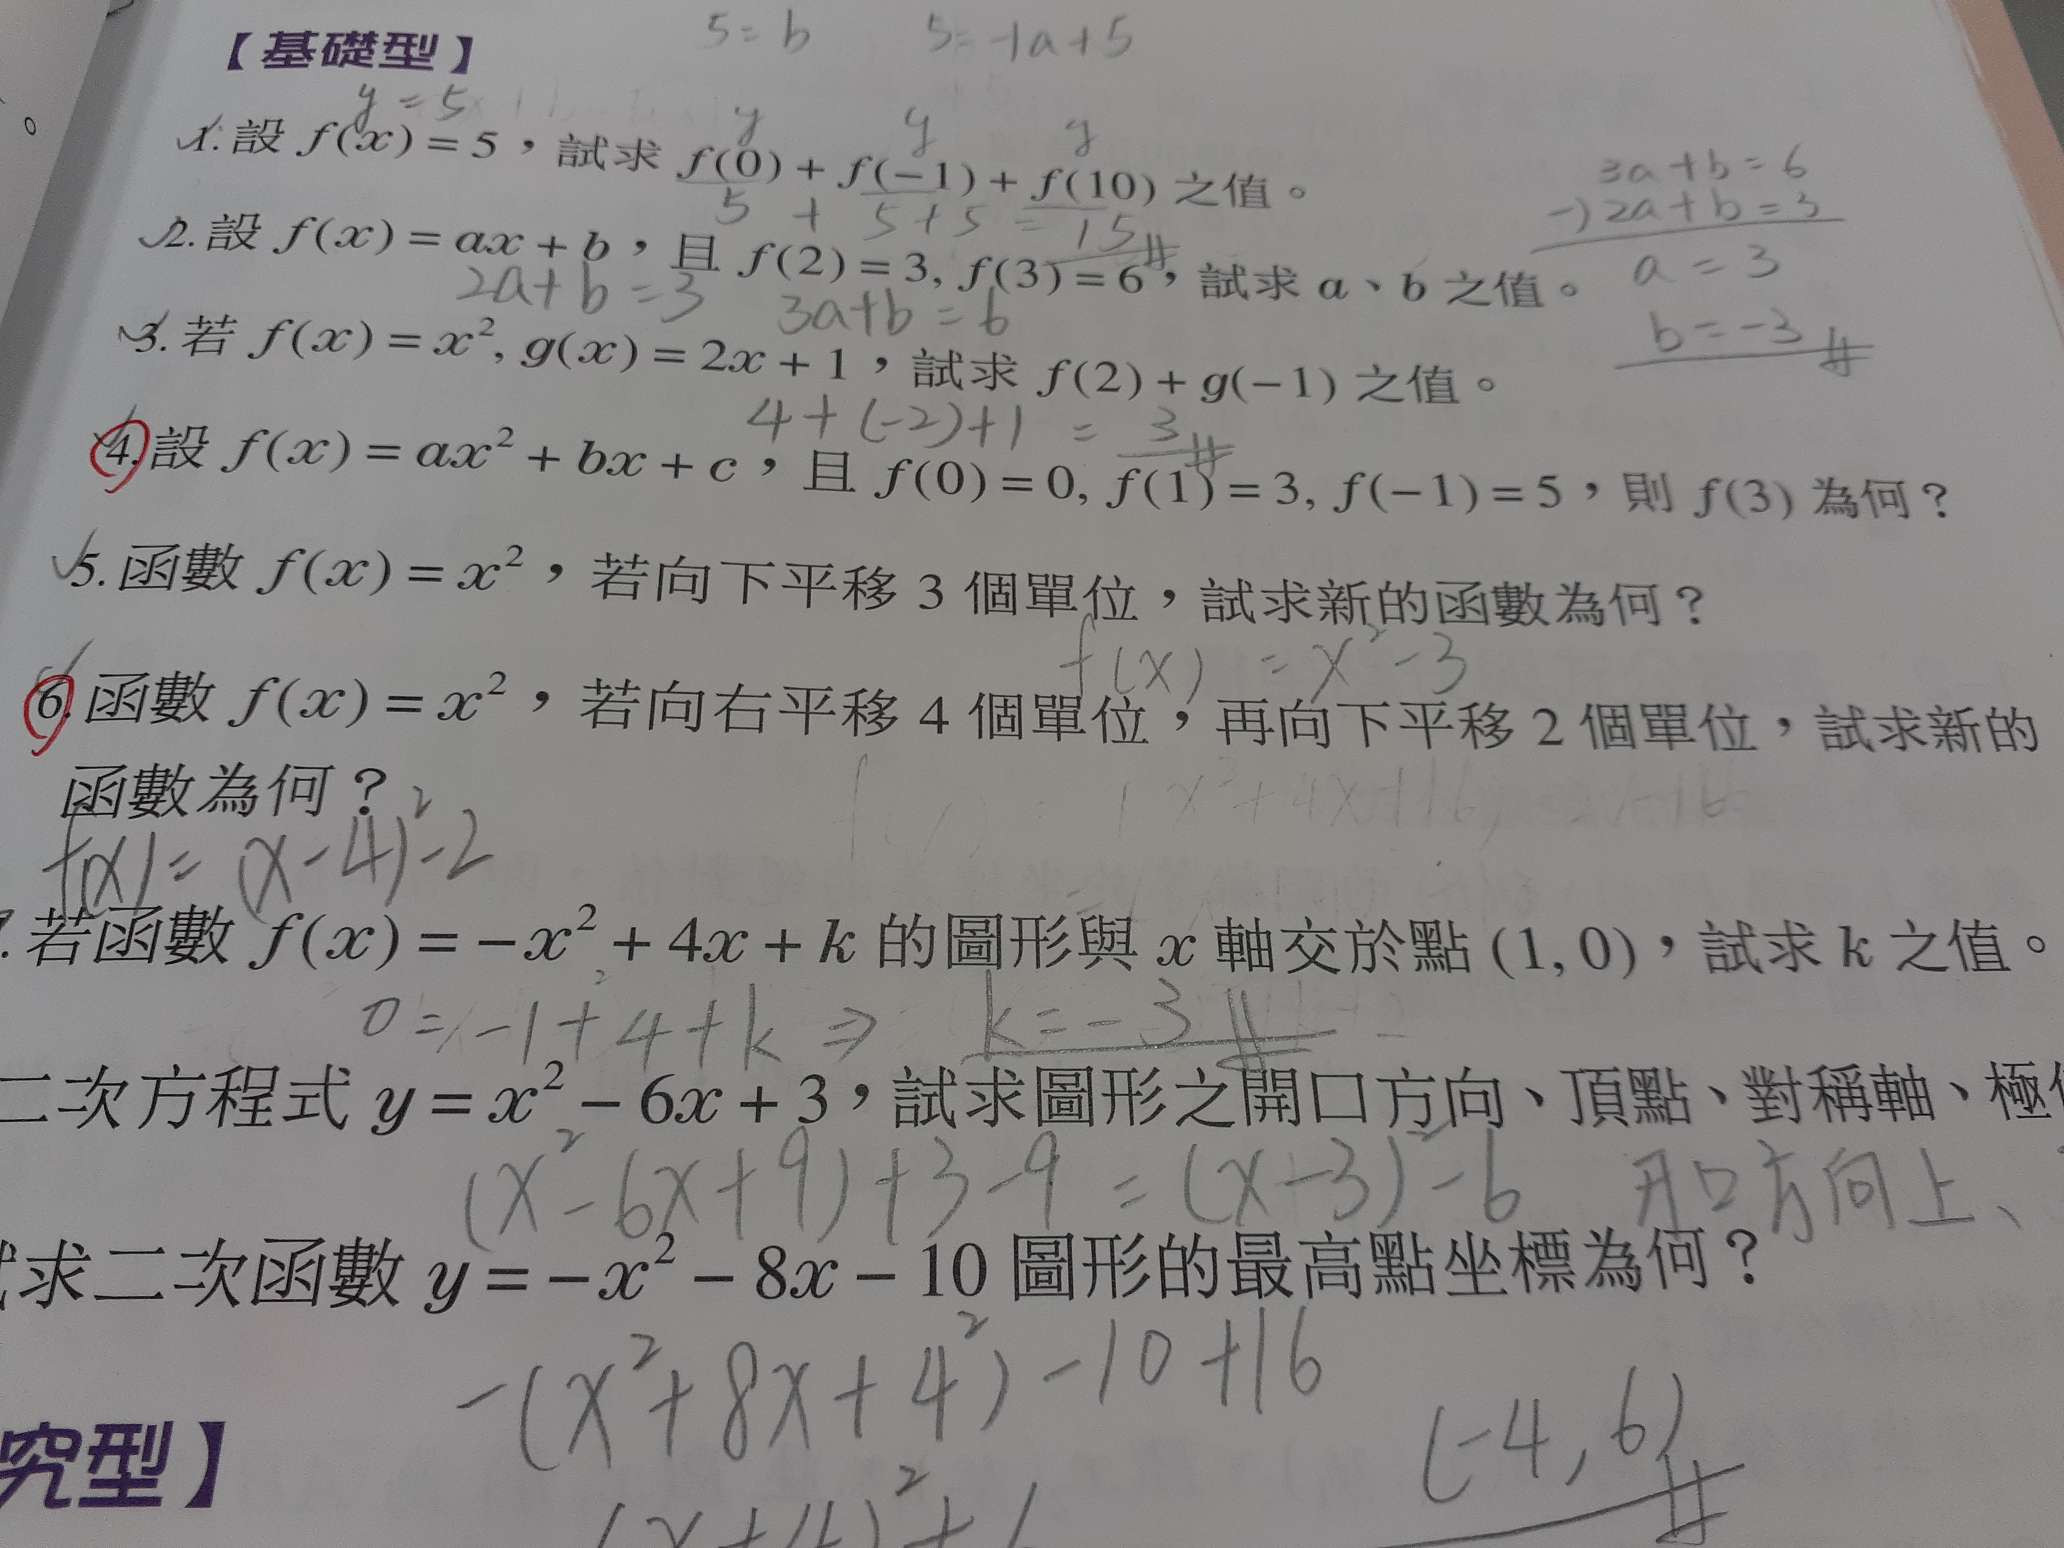 5=b 5=-1a+5
【基礎型】
y=5
y y y
1.設 f(x)=5，試求 f(0)+f(-1)+f(10) 之值。
5 + 5+5 = 15
3a+b=6
-)2a+b=3
a=3
b=-3
2.設 f(x)=ax+b，且 f(2)=3, f(3)=6，試求 a、b 之值。
2a+b=3 3a+b=6
3.若 f(x)=x², g(x)=2x+1，試求 f(2)+g(-1) 之值。
4+(-2)+1 = 3
4.設 f(x)=ax²+bx+c，且 f(0)=0, f(1)=3, f(-1)=5，則 f(3) 為何？
5.函數 f(x)=x²，若向下平移 3 個單位，試求新的函數為何？
f(x)=x²-3
6.函數 f(x)=x²，若向右平移 4 個單位，再向下平移 2 個單位，試求新的
函數為何？
f(x)=(x-4)²-2
.若函數 f(x)=-x²+4x+k 的圖形與 x 軸交於點 (1, 0)，試求 k 之值。
0=-1+4+k ⇒ k=-3
二次方程式 y=x²-6x+3，試求圖形之開口方向、頂點、對稱軸、極
(x²-6x+9)+3-9=(x-3)²-6 开口方向上、
求二次函數 y=-x²-8x-10 圖形的最高點坐標為何？
-(x²+8x+4²)-10+16
(-4,6)
究型】
(x+4)²+